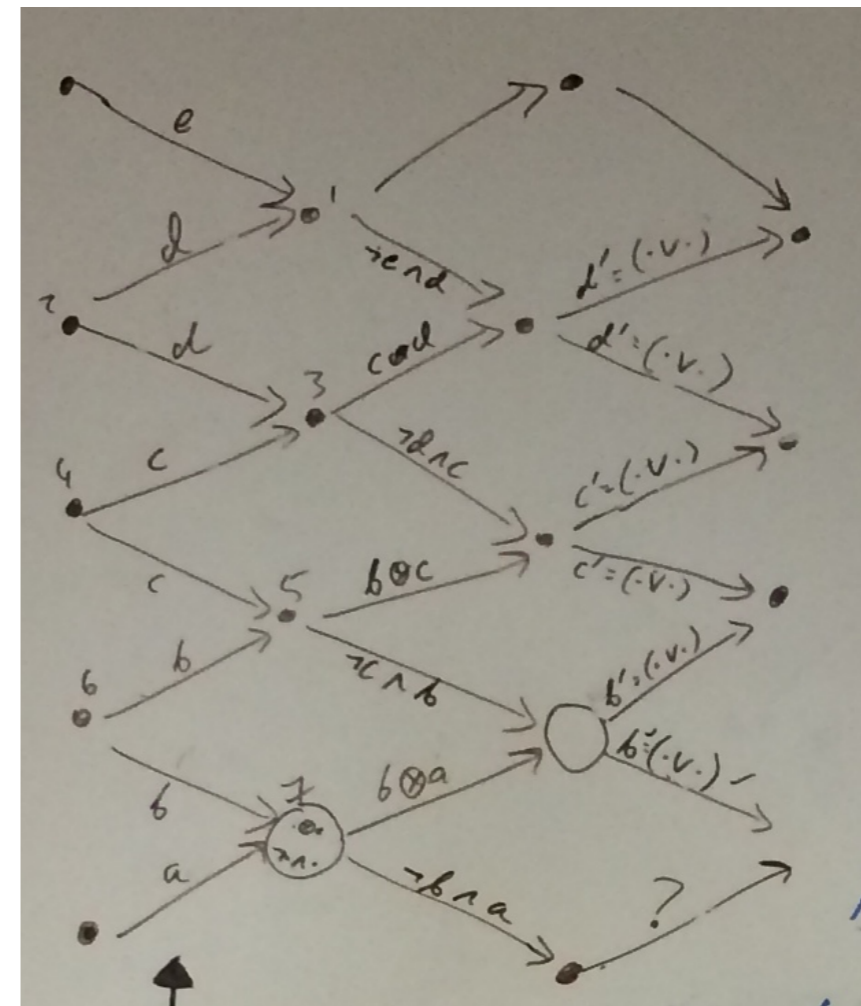 e
1
d
¬e∧d
d'=(·∨·)
2
d
3
c⊗d
d'=(·∨·)
4
c
¬d∧c
c'=(·∨·)
c
5
b⊗c
c'=(·∨·)
6
b
¬c∧b
b'=(·∨·)
b
7
b⊗a
b'=(·∨·)
·⊗·
¬∧·
a
¬b∧a
?